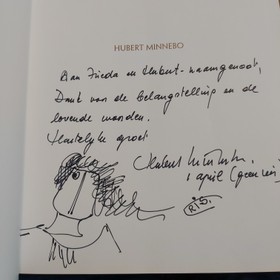 HUBERT MINNEBO
Aan Frieda en Hubert - naamgenoot,
Dank voor de belangstelling en de
lovende woorden.
Hartelijke groet
Hubert Minnebo.
1 april (geen vis)
R.I.S.